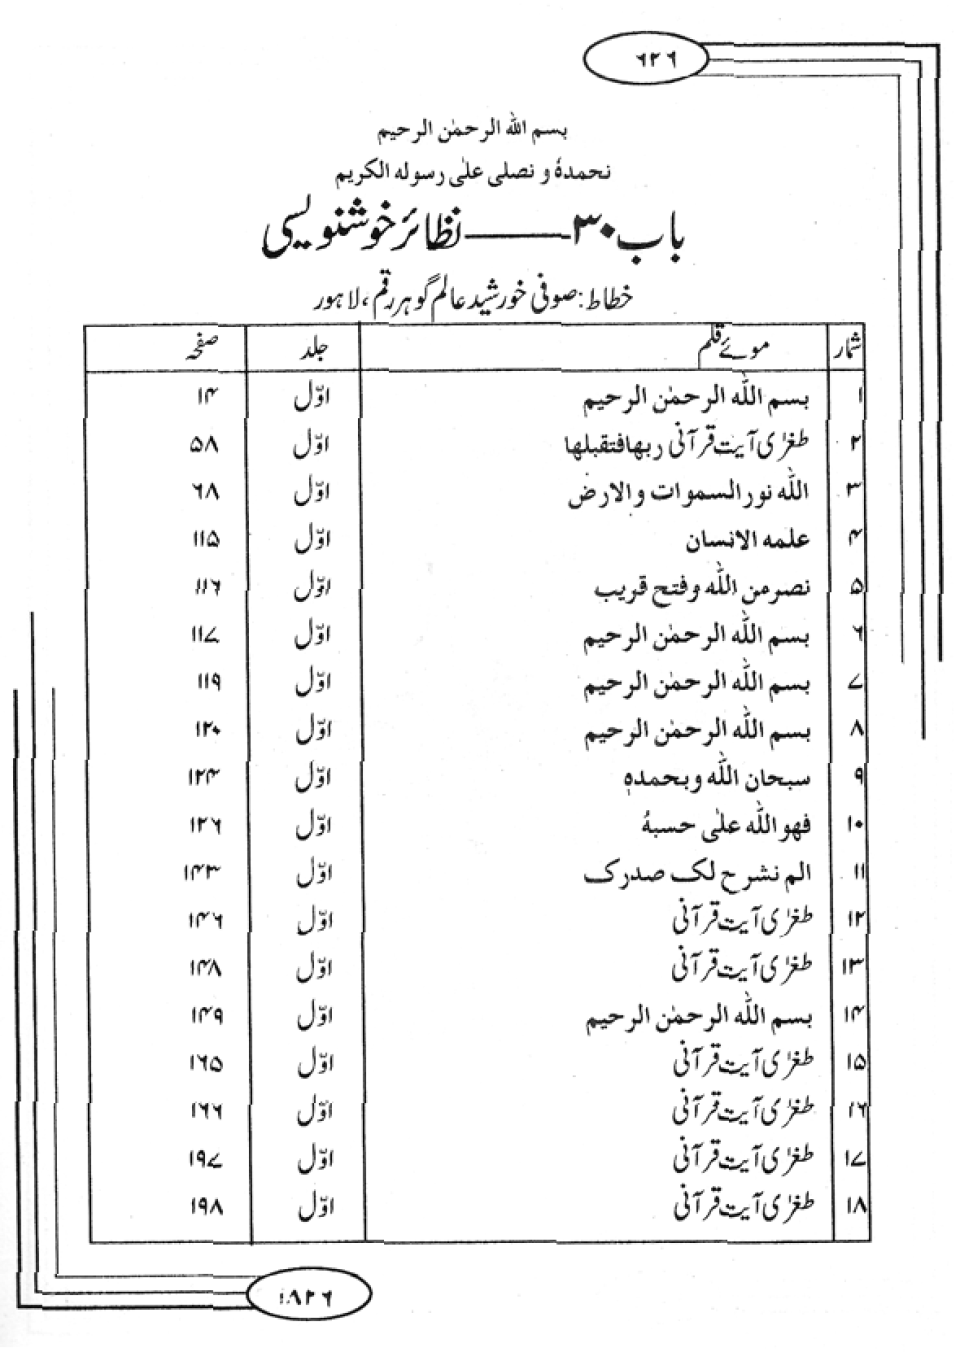 ۶۲۶
بسم الله الرحمٰن الرحیم
نحمدهٗ و نصلی علٰی رسوله الکریم
باب ۳۰ ــــــ نظائر خوشنویسی
خطاط: صوفی خورشید عالم گوہر رقم، لاہور
شمار موئے قلم جلد صفحہ
۱ بسم الله الرحمٰن الرحیم اوّل ۱۴
۲ طغرٰی آیت قرآنی ربها فتقبلها اوّل ۵۸
۳ الله نور السموات والارض اوّل ۶۸
۴ علمه الانسان اوّل ۱۱۵
۵ نصر من الله وفتح قریب اوّل ۱۱۶
۶ بسم الله الرحمٰن الرحیم اوّل ۱۱۷
۷ بسم الله الرحمٰن الرحیم اوّل ۱۱۹
۸ بسم الله الرحمٰن الرحیم اوّل ۱۲۰
۹ سبحان الله وبحمدهٖ اوّل ۱۲۴
۱۰ فهو الله علٰی حسبهٗ اوّل ۱۲۶
۱۱ الم نشرح لک صدرک اوّل ۱۴۳
۱۲ طغرٰی آیت قرآنی اوّل ۱۴۶
۱۳ طغرٰی آیت قرآنی اوّل ۱۴۸
۱۴ بسم الله الرحمٰن الرحیم اوّل ۱۴۹
۱۵ طغرٰی آیت قرآنی اوّل ۱۶۵
۱۶ طغرٰی آیت قرآنی اوّل ۱۶۶
۱۷ طغرٰی آیت قرآنی اوّل ۱۹۷
۱۸ طغرٰی آیت قرآنی اوّل ۱۹۸
۱۸۲۶